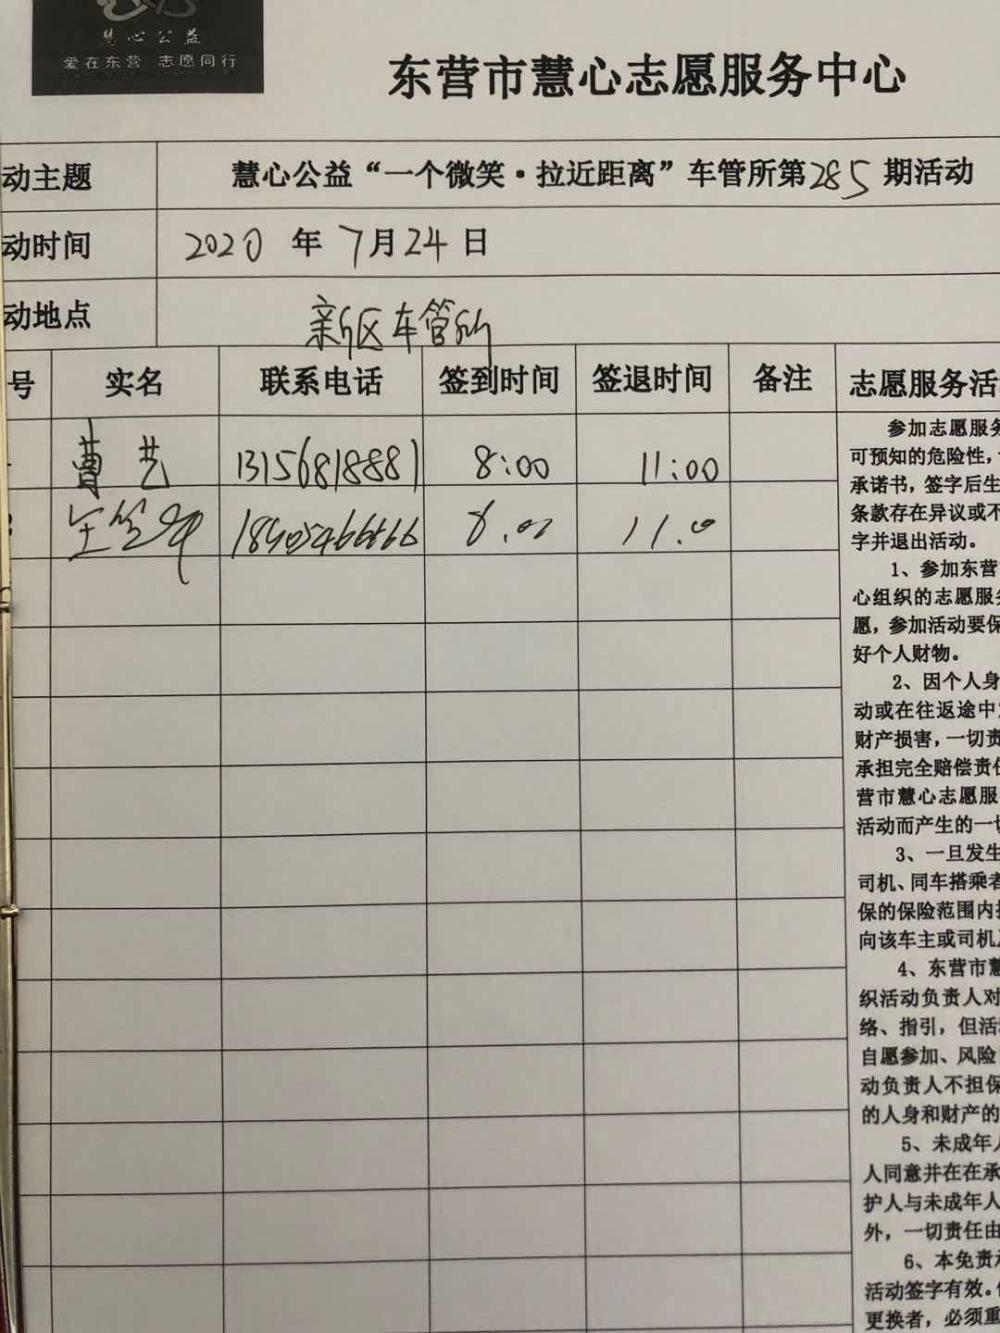 慧心公益
爱在东营 志愿同行
东营市慧心志愿服务中心
动主题 慧心公益“一个微笑·拉近距离”车管所第285期活动
动时间 2020 年 7月24日
动地点 新区车管所
号 实名 联系电话 签到时间 签退时间 备注 志愿服务活
曹艺 13156818881 8:00 11:00
8.00 11.0
参加志愿服务
可预知的危险性,
承诺书,签字后生
条款存在异议或不
字并退出活动。
1、参加东营
心组织的志愿服务
愿,参加活动要保
好个人财物。
2、因个人身
动或在往返途中
财产损害,一切责
承担完全赔偿责任
营市慧心志愿服
活动而产生的一切
3、一旦发生
司机、同车搭乘者
保的保险范围内
向该车主或司机
4、东营市慧
织活动负责人对
络、指引,但活
自愿参加、风险
动负责人不担保
的人身和财产的
5、未成年人
人同意并在在承
护人与未成年人
外,一切责任由
6、本免责
活动签字有效。
更换者,必须重